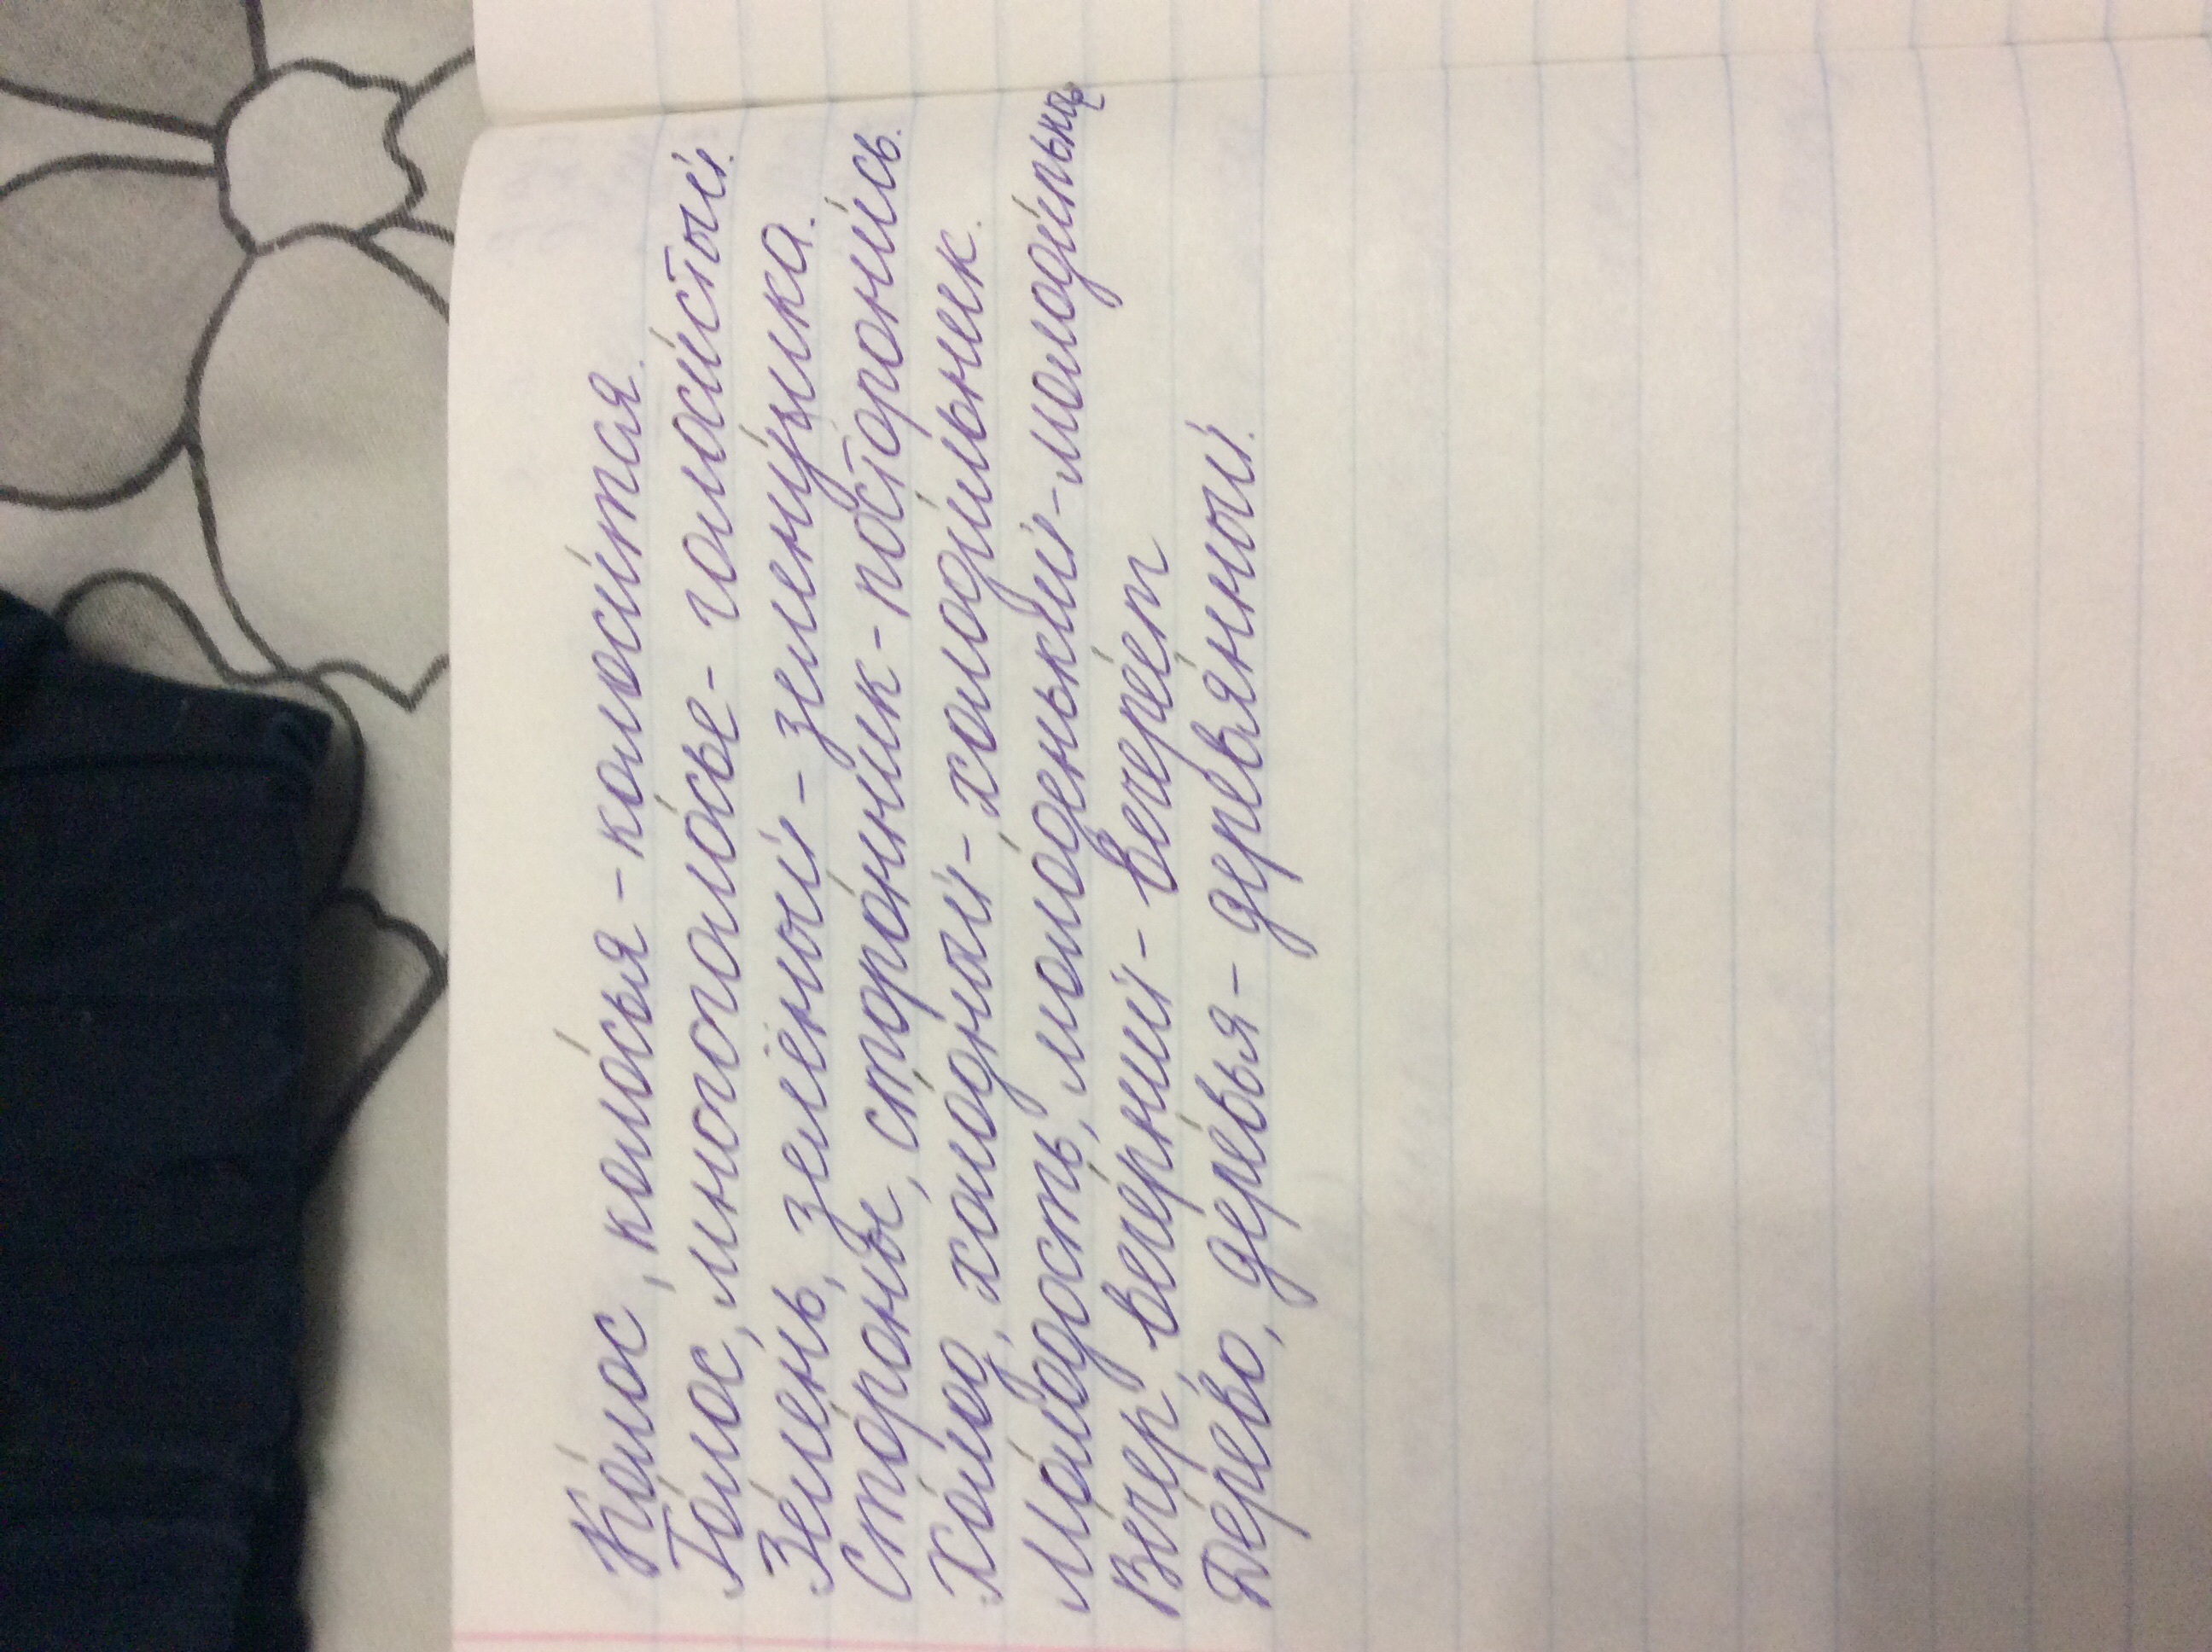 Ко́лос, коло́сья - колоси́тая.
Го́лос, многоголо́сье - голоси́стый.
Зе́лень, зелёный - зелену́шка.
Сто́роны, сторо́нник - посторони́сь.
Хо́лод, холо́дный - холоди́льник.
Мо́лодость, моло́денький - молоди́льные
Ве́чер, вече́рний - вечере́ет
Де́рево, дере́вья - деревя́нный.